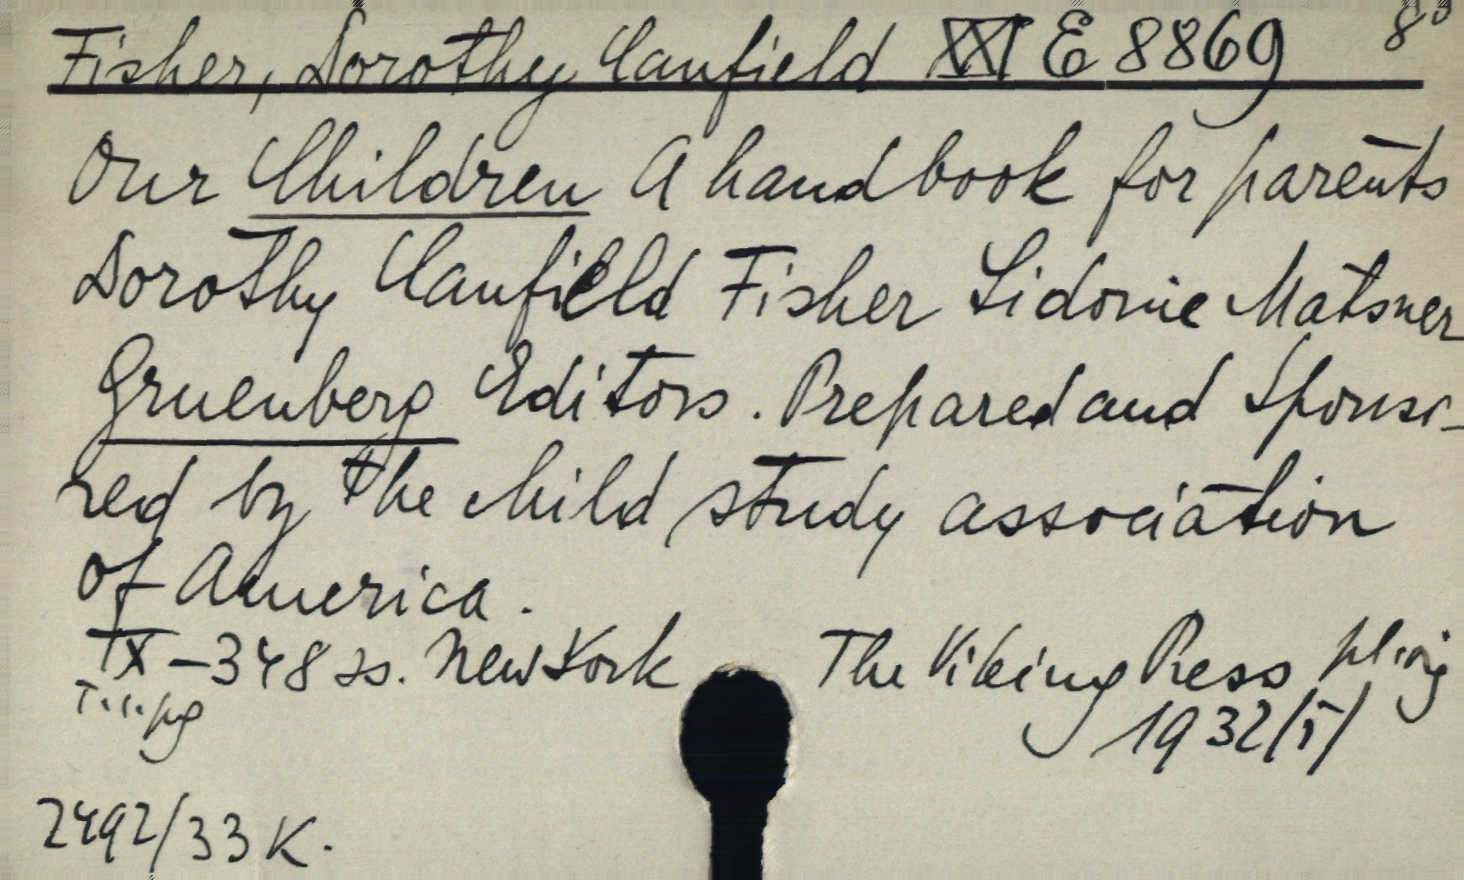 Fisher, Dorothy Canfield XXI E 8869 8°
Our Children A handbook for parents
Dorothy Canfield Fisher Sidonie Matsner
Gruenberg Editors. Prepared and Sponso-
red by the child study association
of America.
IX-348 ss. New York The Viking Press
1932/5/
2492/33 K.